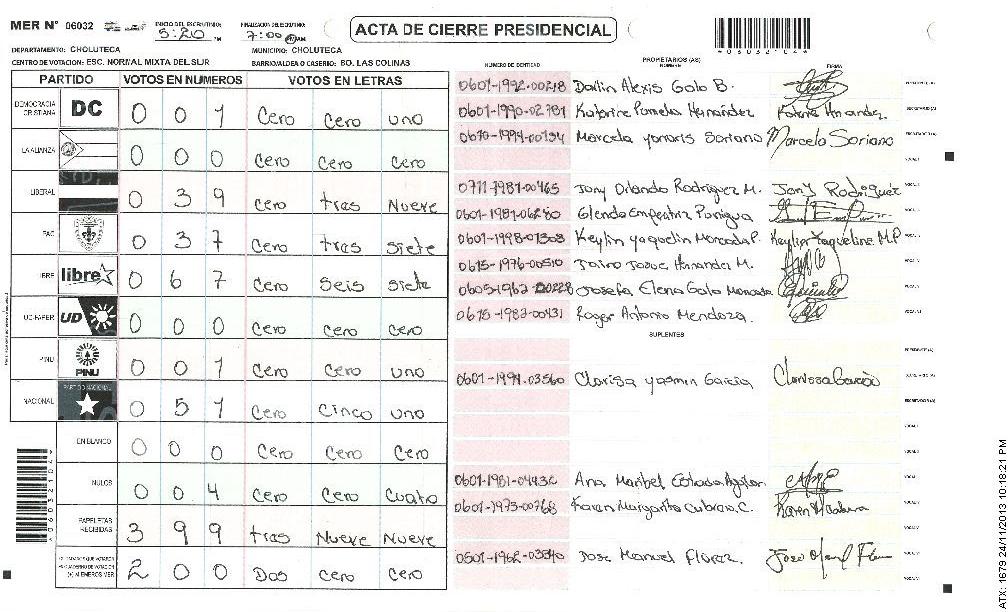 MER N° 06032
INICIO DEL ESCRUTINIO: 5:20 PM
FINALIZACION DEL ESCRUTINIO: 7:00 PM AM
ACTA DE CIERRE PRESIDENCIAL
*06032104*
DEPARTAMENTO: CHOLUTECA MUNICIPIO: CHOLUTECA
CENTRO DE VOTACION: ESC. NORMAL MIXTA DEL SUR BARRIO/ALDEA O CASERIO: BO. LAS COLINAS
PARTIDO VOTOS EN NUMEROS VOTOS EN LETRAS
DEMOCRACIA CRISTIANA DC 0 0 1 Cero Cero uno
LA ALIANZA 0 0 0 Cero Cero Cero
LIBERAL 0 3 9 Cero tras Nueve
PAC 0 3 7 Cero tras Siete
LIBRE libre 0 6 7 Cero Seis Siete
UD-FAPER UD 0 0 0 Cero Cero Cero
PINU PINU 0 0 1 Cero Cero uno
NACIONAL PARTIDO NACIONAL 0 5 1 Cero Cinco uno
EN BLANCO 0 0 0 Cero Cero Cero
NULOS 0 0 4 Cero Cero Cuatro
PAPELETAS RECIBIDAS 3 9 9 tras Nueve Nueve
CIUDADANOS QUE VOTARON 2 0 0 Dos Cero Cero
NUMERO DE IDENTIDAD PROPIETARIOS (AS) NOMBRE FIRMA
0601-1992-00218 Darlin Alexis Galo B.
0601-1990-02781 Katerine Pamela Hernández
Marcela yonaris Soriano Marcela Soriano
0711-1981-00465 Jony Orlando Rodriguez M. Jony Rodriguez
0601-1981-06280 Glenda
Keylin yaquelin Moncada P. Keylin Yaqueline M.P
0615-1976-00510 Jairo Josue Hernandez M.
Josefa Elena Galo Moncada
0615-1982-00431 Roger Antonio Mendoza.
SUPLENTES
0601-1991-03560 Clarisa yasmin Garcia Clarissa Garcia
0601-1981-04432 Ana Maribel Estrada
0601-1973-00768 Karen Margarita
Jose Manuel Flores
*06032104*
ATX: 1679 24/11/2013 10:18:21 PM